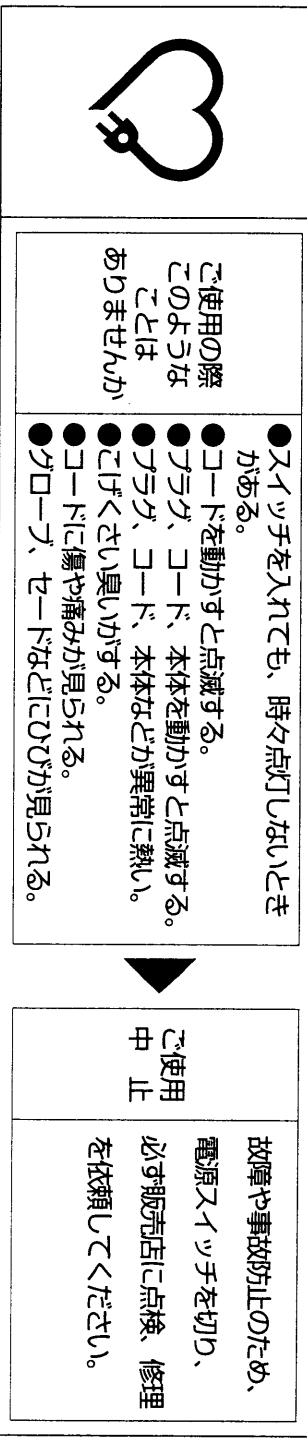 ご使用の際
このような
ことは
ありませんか
●スイッチを入れても、時々点灯しないとき
がある。
●コードを動かすと点滅する。
●プラグ、コード、本体を動かすと点滅する。
●プラグ、コード、本体などが異常に熱い。
●こげくさい臭いがする。
●コードに傷や痛みが見られる。
●グローブ、セードなどにひびが見られる。
ご使用
中 止
故障や事故防止のため、
電源スイッチを切り、
必ず販売店に点検、修理
を依頼してください。